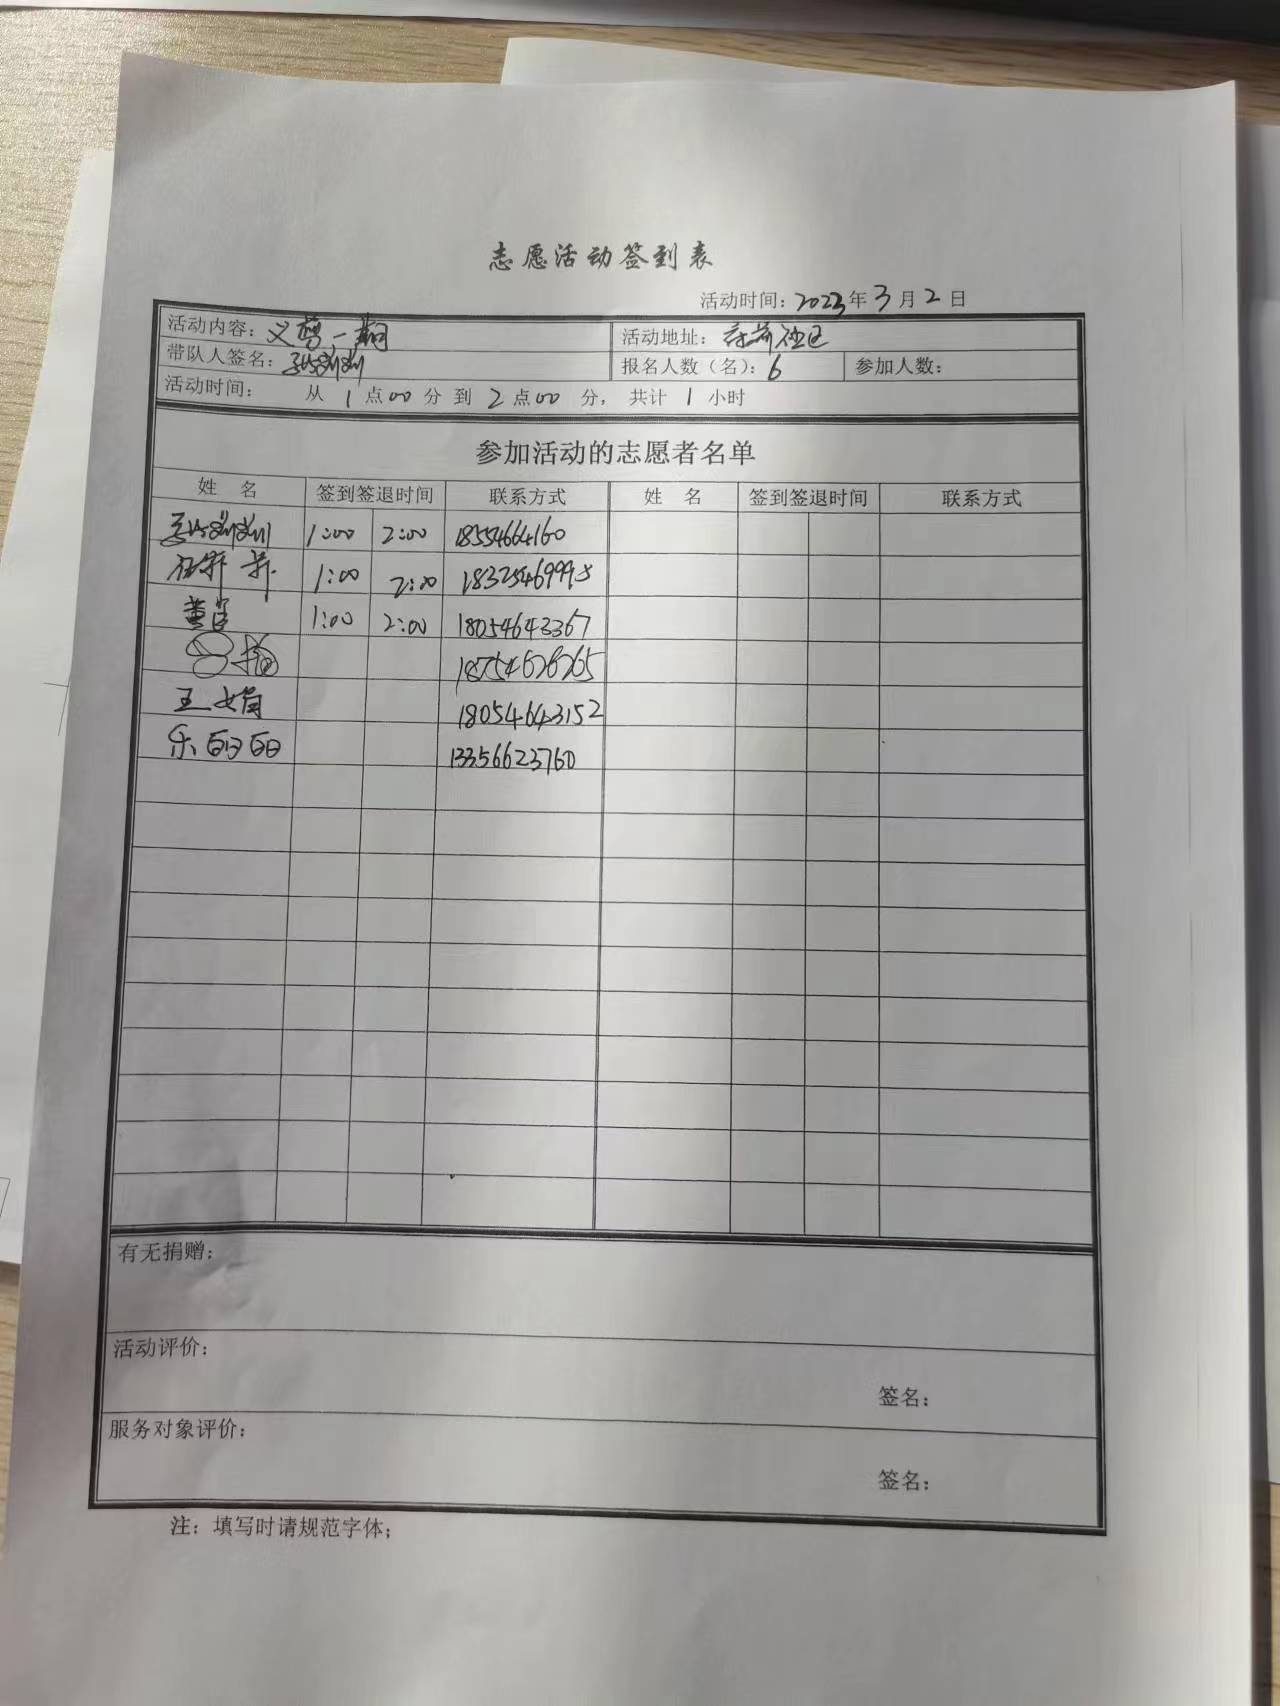 志愿活动签到表
活动时间：2023年3月2日
活动内容：义 一期 活动地址：社区
带队人签名： 报名人数（名）：6 参加人数：
活动时间： 从 1 点00 分 到 2 点00 分， 共计 1 小时
参加活动的志愿者名单
姓 名 签到签退时间 联系方式 姓 名 签到签退时间 联系方式
1:00 2:00 18554664160
1:00 2:00 18325469998
黄 1:00 2:00 18054643367
18754626265
王娟 18054643152
乐 13356623760
有无捐赠：
活动评价：
签名：
服务对象评价：
签名：
注：填写时请规范字体；